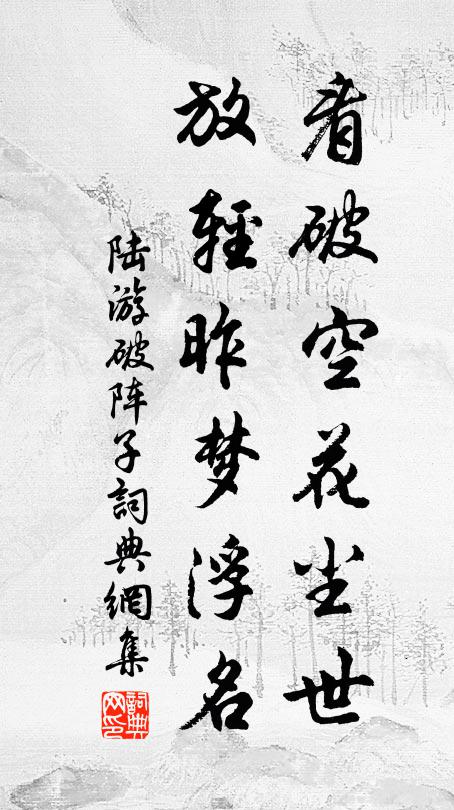 看破空花尘世
放輕昨梦浮名
陆游破阵子詞典網集
詞典网印